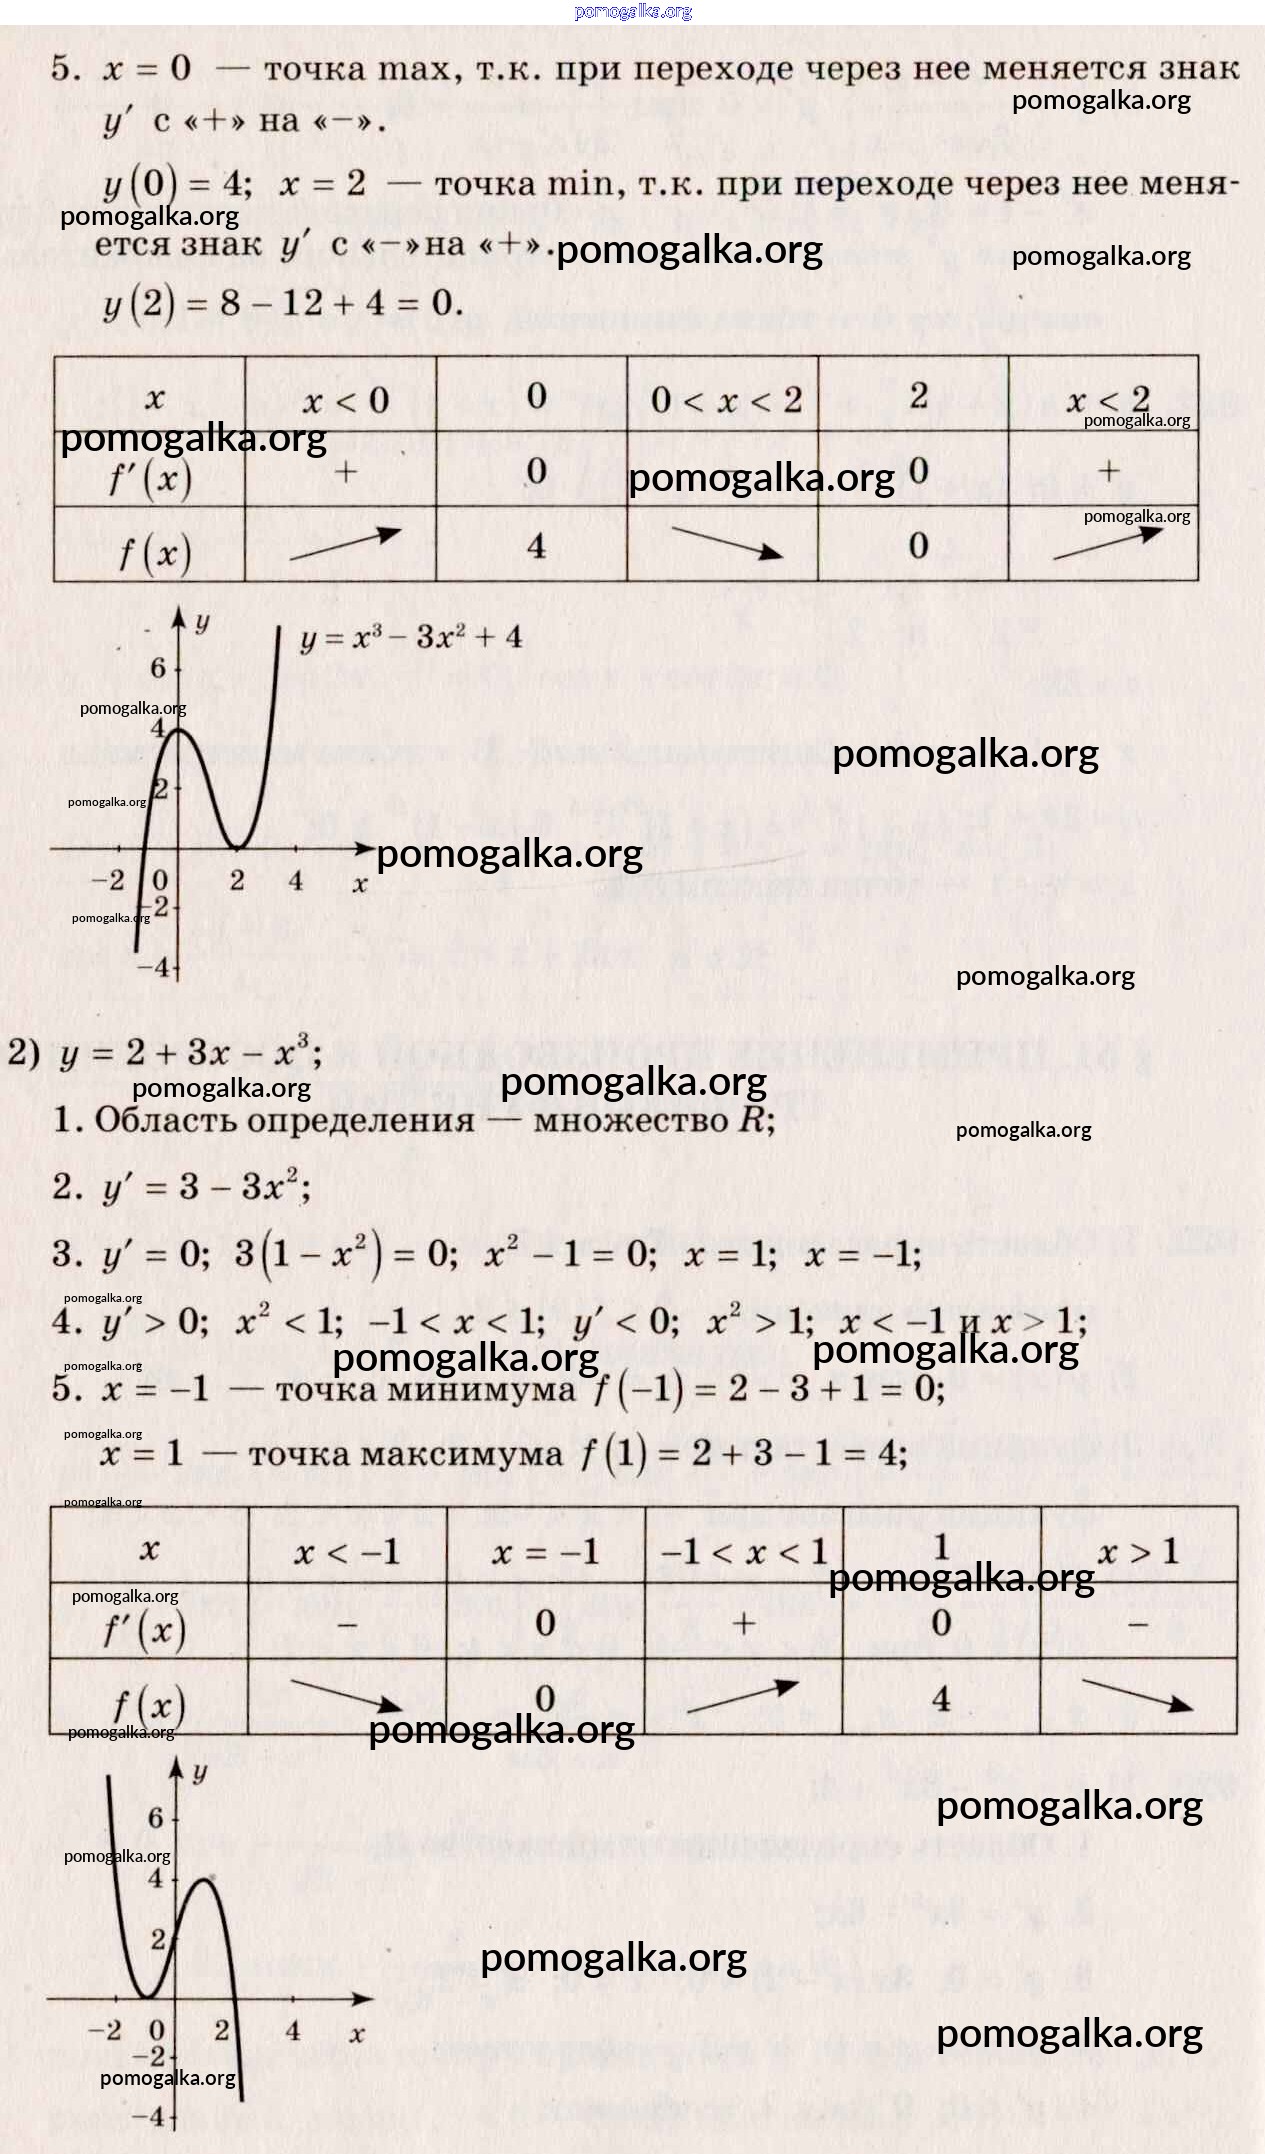 pomogalka.org
5. x = 0 — точка max, т.к. при переходе через нее меняется знак
pomogalka.org
y′ с «+» на «−».
y(0) = 4; x = 2 — точка min, т.к. при переходе через нее меня-
pomogalka.org
ется знак y′ с «−»на «+».
pomogalka.org
pomogalka.org
y(2) = 8 − 12 + 4 = 0.
x x < 0 0 0 < x < 2 2 x < 2
pomogalka.org
pomogalka.org
f′(x) + 0 − 0 +
pomogalka.org
pomogalka.org
f(x) 4 0
y
y = x³ − 3x² + 4
6
pomogalka.org
4
pomogalka.org
2
pomogalka.org
pomogalka.org
−2 0 2 4 x
−2
pomogalka.org
−4
pomogalka.org
2) y = 2 + 3x − x³;
pomogalka.org
pomogalka.org
1. Область определения — множество R;
pomogalka.org
2. y′ = 3 − 3x²;
3. y′ = 0; 3(1 − x²) = 0; x² − 1 = 0; x = 1; x = −1;
pomogalka.org
4. y′ > 0; x² < 1; −1 < x < 1; y′ < 0; x² > 1; x < −1 и x > 1;
pomogalka.org
pomogalka.org
pomogalka.org
5. x = −1 — точка минимума f(−1) = 2 − 3 + 1 = 0;
pomogalka.org
x = 1 — точка максимума f(1) = 2 + 3 − 1 = 4;
pomogalka.org
x x < −1 x = −1 −1 < x < 1 1 x > 1
pomogalka.org
pomogalka.org
f′(x) − 0 + 0 −
f(x) 0 4
pomogalka.org
pomogalka.org
y
pomogalka.org
6
pomogalka.org
4
2
pomogalka.org
−2 0 2 4 x
pomogalka.org
−2
pomogalka.org
−4